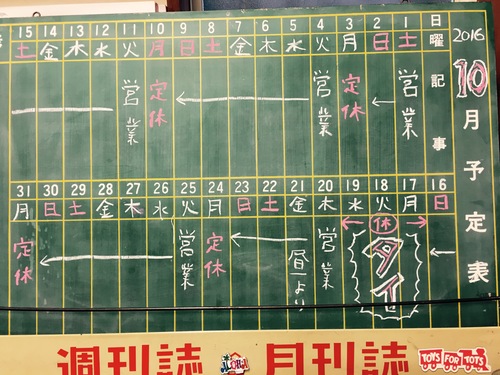 2016
10月予定表
日曜記事
1 土 営業
2 日
3 月 定休
4 火 営業
5 水
6 木
7 金
8 土
9 日
10 月 定休
11 火 営業
12 水
13 木
14 金
15 土
16 日
17 月
18 火 休 タイ
19 水
20 木 営業
21 金 昼より
22 土
23 日
24 月 定休
25 火 営業
26 水
27 木
28 金
29 土
30 日
31 月 定休
週刊誌 月刊誌
TOYS FOR TOTS